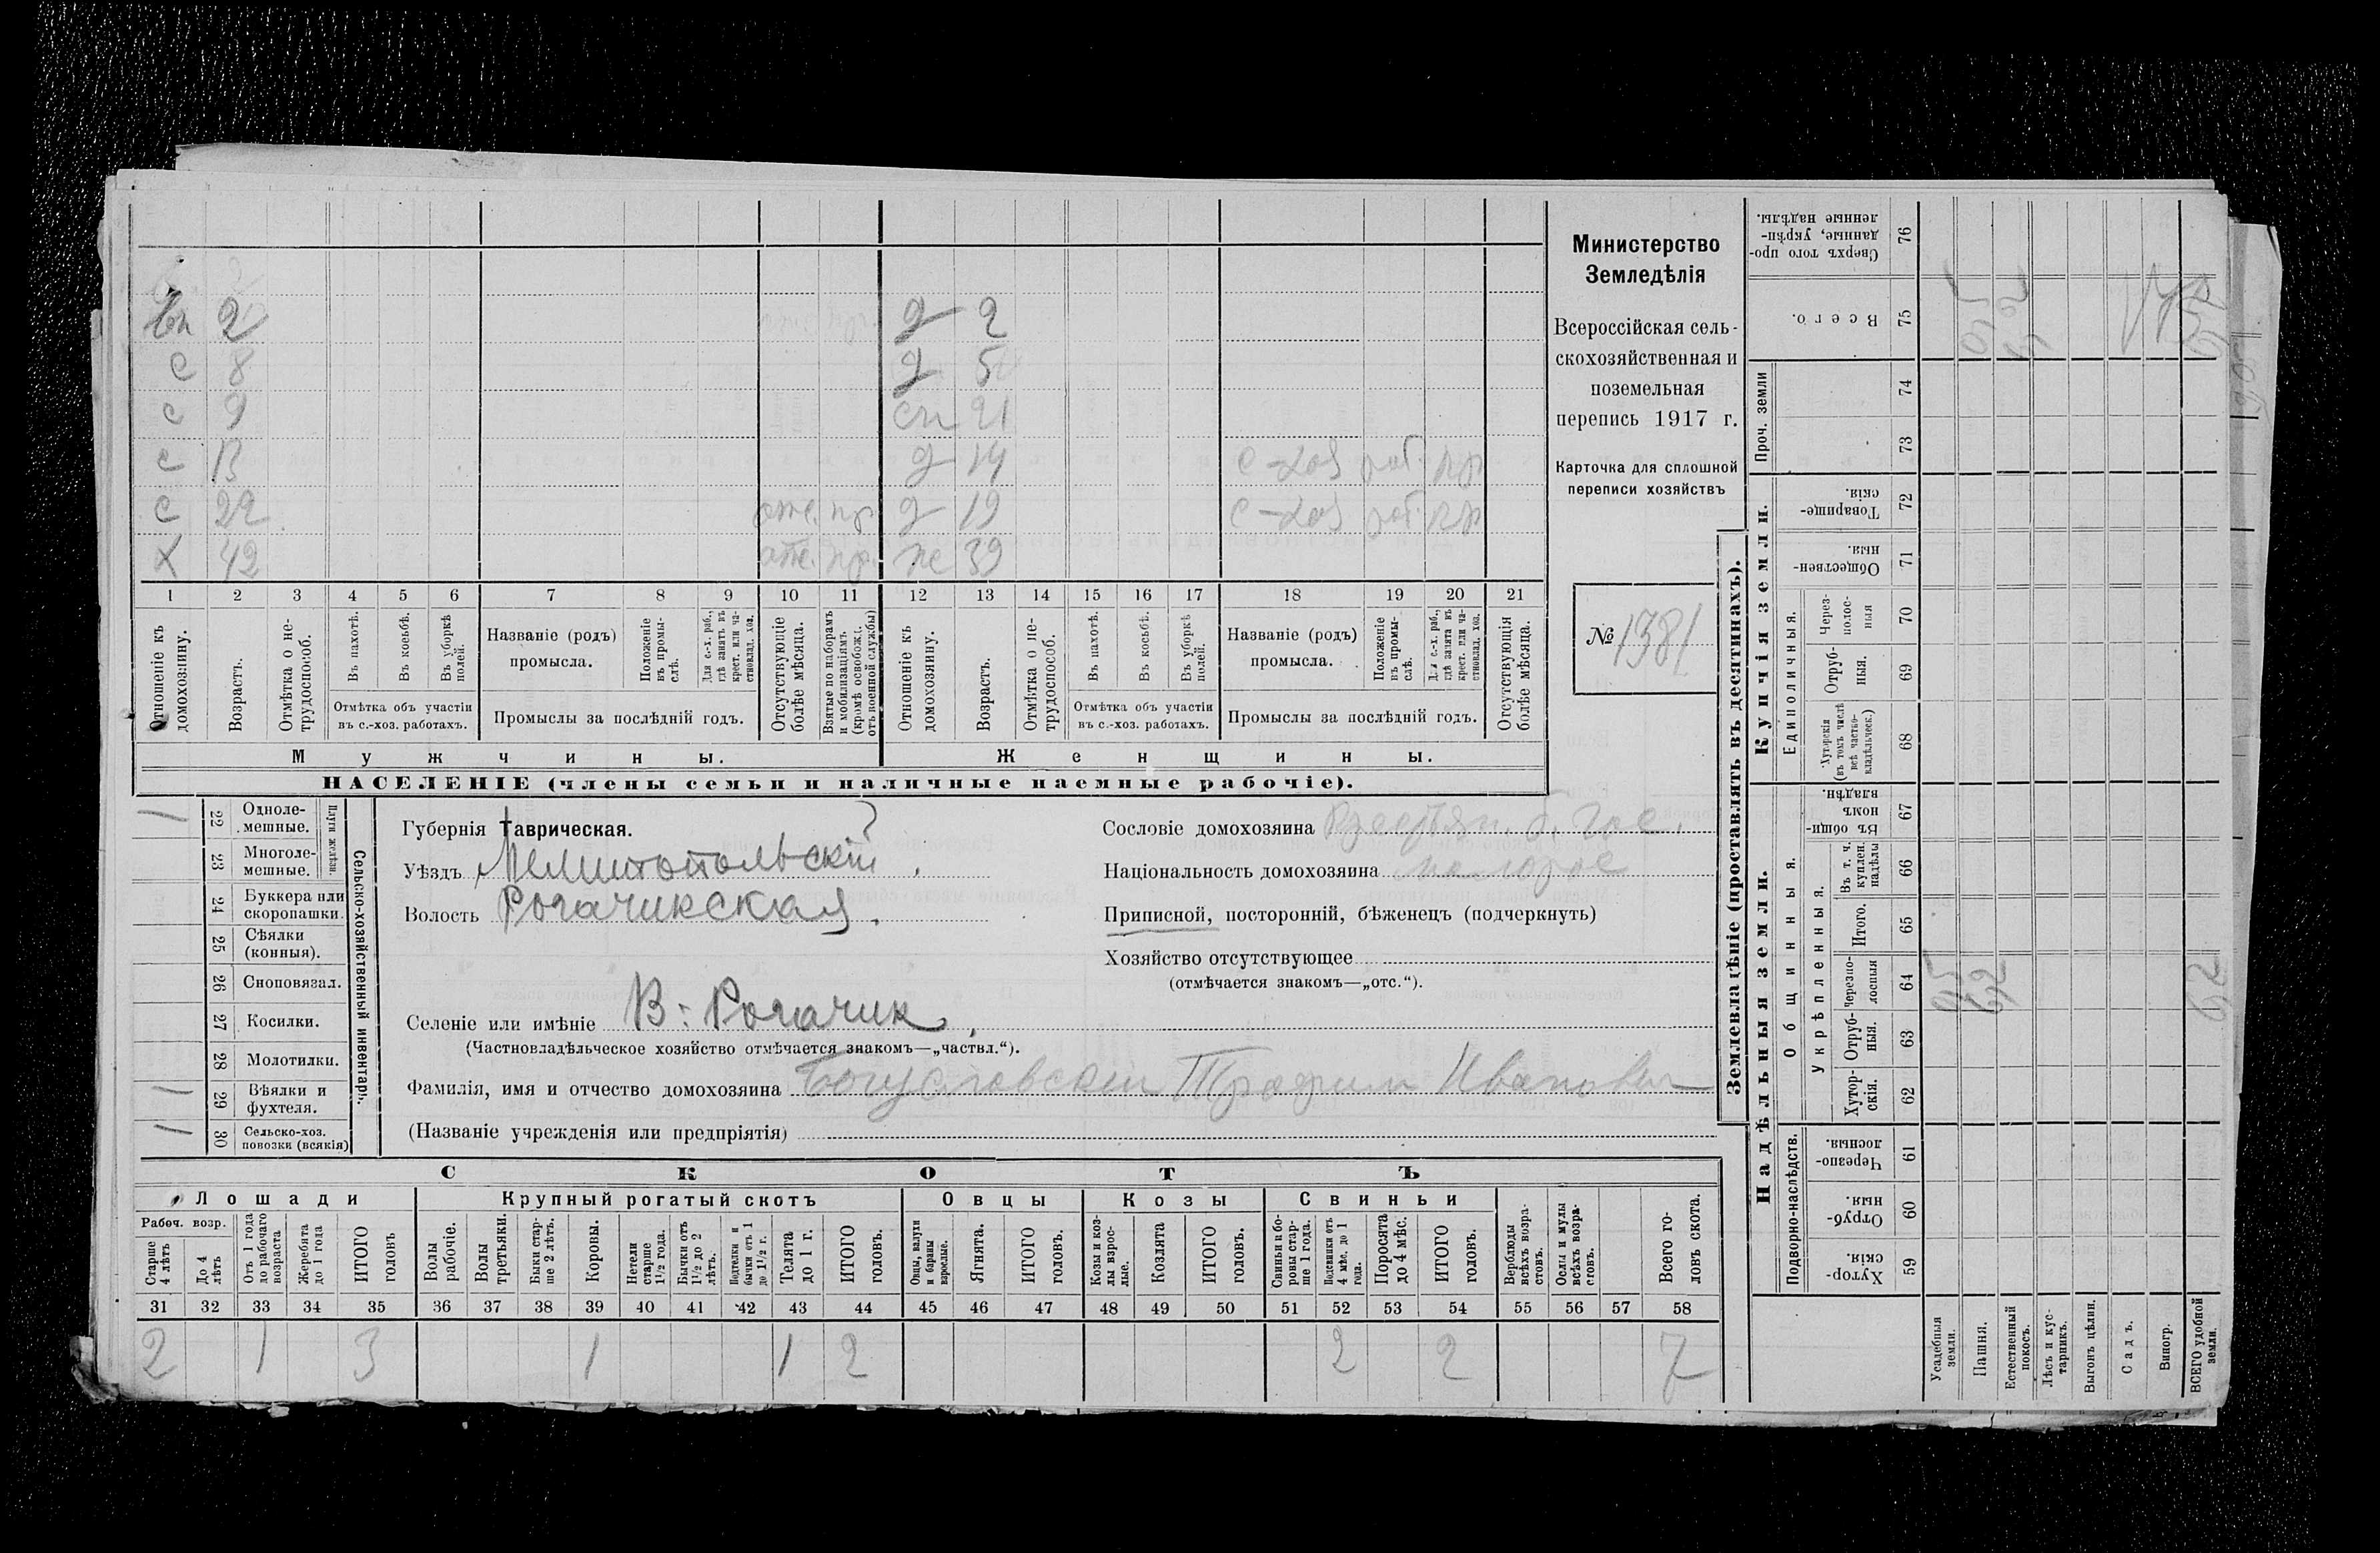 Вн 2 д 2
С 8 д 5
С 9 сн 21
С 13 д 14 с-хоз раб. кр
С 22 отс. пр д 19 с-хоз раб. кр
Х 42 отс. пр. же 39
1 2 3 4 5 6 7 8 9 10 11 12 13 14 15 16 17 18 19 20 21
Отношеніе къ домохозяину.
Возрастъ.
Отмѣтка о не-трудоспособ.
Въ пахотѣ.
Въ косьбѣ.
Въ уборкѣ полей.
Отмѣтка объ участіи
въ с.-хоз. работахъ.
Названіе (родъ)
промысла.
Положеніе въ промы-слѣ.
Для с.-х. раб., гдѣ занятъ въ крест. или ча-стновлад. хоз.
Промыслы за послѣдній годъ.
Отсутствующіе болѣе мѣсяца.
Взятые по наборамъ и мобилизаціямъ (кромѣ освобожд. отъ военной службы)
Отношеніе къ домохозяину.
Возрастъ.
Отмѣтка о не-трудоспособ.
Въ пахотѣ.
Въ косьбѣ.
Въ уборкѣ полей.
Отмѣтка объ участіи
въ с.-хоз. работахъ.
Названіе (родъ)
промысла.
Положеніе въ промы-слѣ.
Для с.-х раб., гдѣ занята въ крест. или ча-стновлад. хоз.
Промыслы за послѣдній годъ.
Отсутствующія болѣе мѣсяца.
Мужчины. Женщины.
НАСЕЛЕНІЕ (члены семьи и наличные наемные рабочіе).
Министерство
Земледѣлія
Всероссійская сель-
скохозяйственная и
поземельная
перепись 1917 г.
Карточка для сплошной
переписи хозяйствъ
№ 1381
1 22 Одноле-мешные.
23 Многоле-мешные.
Плуги желѣзн.
24 Буккера или скоропашки.
25 Сѣялки (конныя).
26 Сноповязал.
27 Косилки.
28 Молотилки.
1 29 Вѣялки и фухтеля.
1 30 Сельско-хоз. повозки (всякія)
Сельско-хозяйственный инвентарь.
Губернія Таврическая.
Уѣздъ Мелитопольскій.
Волость Рогачикская.
Селеніе или имѣніе В: Рогачик.
(Частновладѣльческое хозяйство отмѣчается знакомъ—„частвл.“).
Фамилія, имя и отчество домохозяина Богуславскій Трофим Иванович
(Названіе учрежденія или предпріятія)
Сословіе домохозяина Крестьян. б. Гос.
Національность домохозяина малорос
Приписной, посторонній, бѣженецъ (подчеркнуть)
Хозяйство отсутствующее
(отмѣчается знакомъ—„отс.“).
СКОТЪ
Лошади Крупный рогатый скотъ Овцы Козы Свиньи
Рабоч. возр.
Старше 4 лѣтъ
До 4 лѣтъ
Отъ 1 года до рабочаго возраста
Жеребята до 1 года
ИТОГО головъ
Волы рабочіе.
Волы третьяки.
Быки стар-ше 2 лѣтъ.
Коровы.
Нетели старше 1½ года.
Бычки отъ 1½ до 2 лѣтъ.
Подтелки и бычки отъ 1 до 1½ г.
Телята до 1 г.
ИТОГО головъ.
Овцы, валухи и бараны взрослые.
Ягнята.
ИТОГО головъ.
Козы и коз-лы взрос-лые.
Козлята
ИТОГО головъ.
Свиньи и бо-ровы стар-ше 1 года.
Подсвинки отъ 4 мѣс. до 1 года.
Поросята до 4 мѣс.
ИТОГО головъ.
Верблюды всѣхъ возра-стовъ.
Ослы и мулы всѣхъ возра-стовъ.
Всего го-ловъ скота.
31 32 33 34 35 36 37 38 39 40 41 42 43 44 45 46 47 48 49 50 51 52 53 54 55 56 57 58
2 1 3 1 1 2 2 2 7
Землевладѣніе (проставлять въ десятинахъ).
Надѣльныя земли. Купчія земли.
Подворно-наслѣдств.
Общинныя.
Укрѣпленныя.
Единоличныя.
Проч. земли
Сверхъ того про-данные, укрѣп-ленные надѣлы. 76
Всего. 75
74
73
Товарище-скія. 72
Обществен-ныя. 71
Через-полос-ныя 70
Отруб-ныя. 69
Хуторскія (въ томъ числѣ всѣ частно-владѣльческ.) 68
Въ общин-номъ владѣн. 67
Въ т. ч. куплен. надѣлы 66
Итого. 65
Черезпо-лосныя 64
Отруб-ныя. 63
Хутор-скія. 62
Черезпо-лосныя. 61
Отруб-ныя. 60
Хутор-скія. 59
Усадебныя земли.
Пашня.
Естественный покосъ.
Лѣсъ и кус-тарникъ.
Выгонъ цѣлин.
Садъ.
Виногр.
ВСЕГО удобной земли.